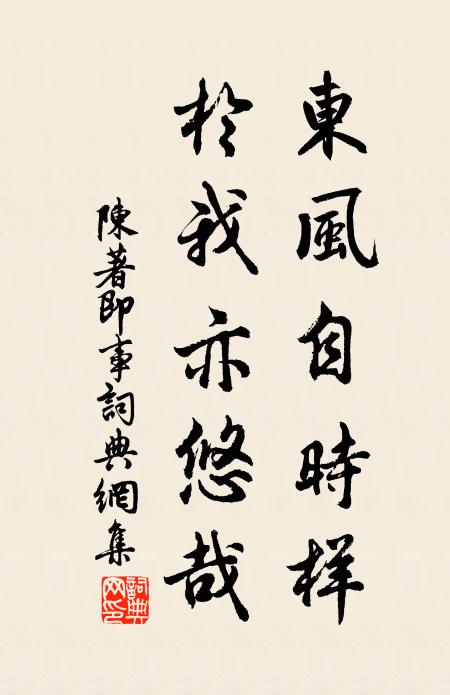 東風自時样
於我亦悠哉
陳著即事詞典網集